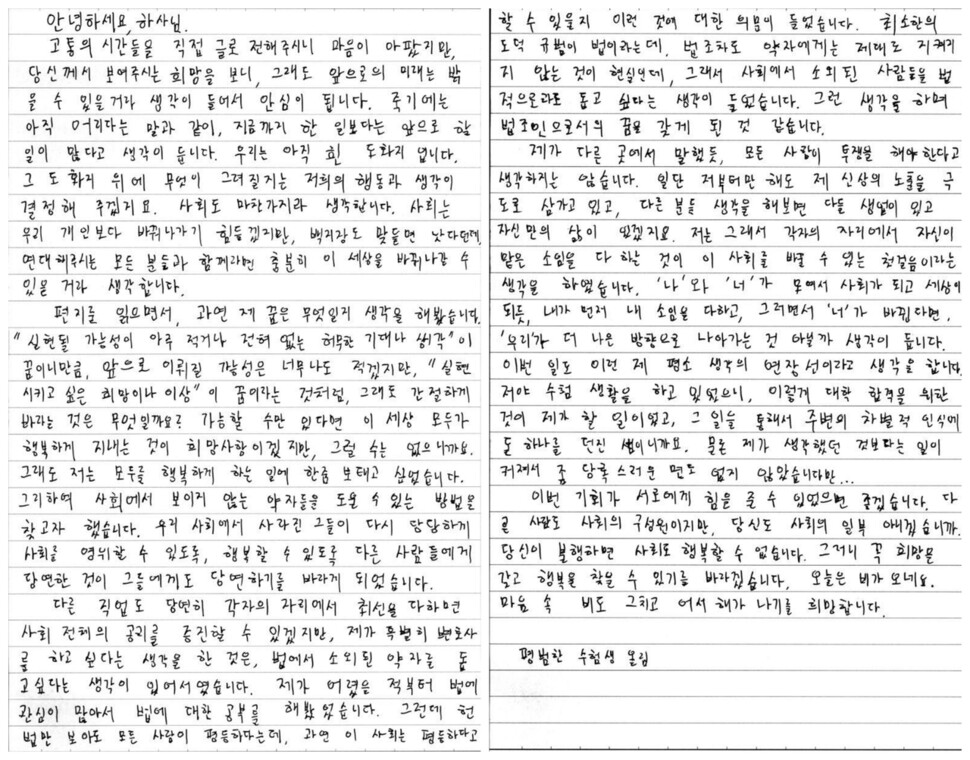 안녕하세요, 하사님.
고통의 시간들을 직접 글로 전해주시니 마음이 아팠지만,
당신께서 보여주시는 희망을 보니, 그래도 앞으로의 미래는 밝
을 수 있을거라 생각이 들어서 안심이 됩니다. 죽기에는
아직 어리다는 말과 같이, 지금까지 한 일보다는 앞으로 할
일이 많다고 생각이 듭니다. 우리는 아직 흰 도화지 입니다.
그 도화지 위에 무엇이 그려질지는 저희의 행동과 생각이
결정해 주겠지요. 사회도 마찬가지라 생각합니다. 사회는
우리 개인보다 바뀌나가기 힘들겠지만, 백지장도 맞들면 낫다던데,
연대해주시는 모든 분들과 함께라면 충분히 이 세상을 바꿔나갈 수
있을 거라 생각합니다.
편지를 읽으면서, 과연 제 꿈은 무엇일지 생각을 해봤습니다.
"실현될 가능성이 아주 적거나 전혀 없는 허무한 기대나 생각"이
꿈이니만큼, 앞으로 이뤄질 가능성은 너무나도 적겠지만, "실현
시키고 싶은 희망이나 이상"이 꿈이라는 것처럼, 그래도 간절하게
바라는 것은 무엇일까요? 가능할 수만 있다면 이 세상 모두가
행복하게 지내는 것이 희망사항이겠지만, 그럴 수는 없으니까요.
그래도 저는 모두를 행복하게 하는 일에 한줌 보태고 싶었습니다.
그리하여 사회에서 보이지 않는 약자들을 도울 수 있는 방법을
찾고자 했습니다. 우리 사회에서 사라진 그들이 다시 당당하게
사회를 영위할 수 있도록, 행복할 수 있도록 다른 사람들에게
당연한 것이 그들에게도 당연하기를 바라게 되었습니다.
다른 직업도 당연히 각자의 자리에서 최선을 다하면
사회 전체의 공리를 증진할 수 있겠지만, 제가 특별히 변호사
를 하고 싶다는 생각을 한 것은, 법에서 소외된 약자를 돕
고싶다는 생각이 있어서였습니다. 제가 어렸을 적부터 법에
관심이 많아서 법에 대한 공부를 해봤었습니다. 그런데 헌
법만 보아도 모든 사람이 평등하다는데, 과연 이 사회는 평등하다고
할 수 있을지 이런 것에 대한 의문이 들었습니다. 최소한의
도덕 규범이 법이라는데, 법조차도 약자에게는 제대로 지켜지
지 않는 것이 현실인데, 그래서 사회에서 소외된 사람들을 법
적으로라도 돕고 싶다는 생각이 들었습니다. 그런 생각을 하며
법조인으로서의 꿈을 갖게 된 것 같습니다.
제가 다른 곳에서 말했듯, 모든 사람이 투쟁을 해야한다고
생각하지는 않습니다. 일단 저부터만 해도 제 신상의 노출을 극
도로 삼가고 있고, 다른 분들 생각을 해보면 다들 생업이 있고
자신만의 삶이 있겠지요. 저는 그래서 각자의 자리에서 자신이
맡은 소임을 다 하는 것이 이 사회를 바꿀 수 있는 첫걸음이라는
생각을 하였습니다. '나'와 '너'가 모여서 사회가 되고 세상이
되듯, 내가 먼저 내 소임을 다하고, 그러면서 '너'가 바뀐다면,
'우리'가 더 나은 방향으로 나아가는 것 아닐까 생각이 듭니다.
이번 일도 이런 제 평소 생각의 연장선이라고 생각을 합니다.
저야 수험 생활을 하고 있었으니, 이렇게 대학 합격을 위한
것이 제가 할 일이었고, 그 일을 통해서 주변의 차별적 인식에
돌 하나를 던진 셈이니까요. 물론 제가 생각했던 것보다는 일이
커져서 좀 당혹스러운 면도 없지 않았습니다만...
이번 기회가 서로에게 힘을 줄 수 있었으면 좋겠습니다. 다
른 사람도 사회의 구성원이지만, 당신도 사회의 일부 아니겠습니까.
당신이 불행하면 사회도 행복할 수 없습니다. 그러니 꼭 희망을
갖고 행복을 찾을 수 있기를 바라겠습니다. 오늘은 비가 오네요.
마음 속 비도 그치고 어서 해가 나기를 희망합니다.
평범한 수험생 올림